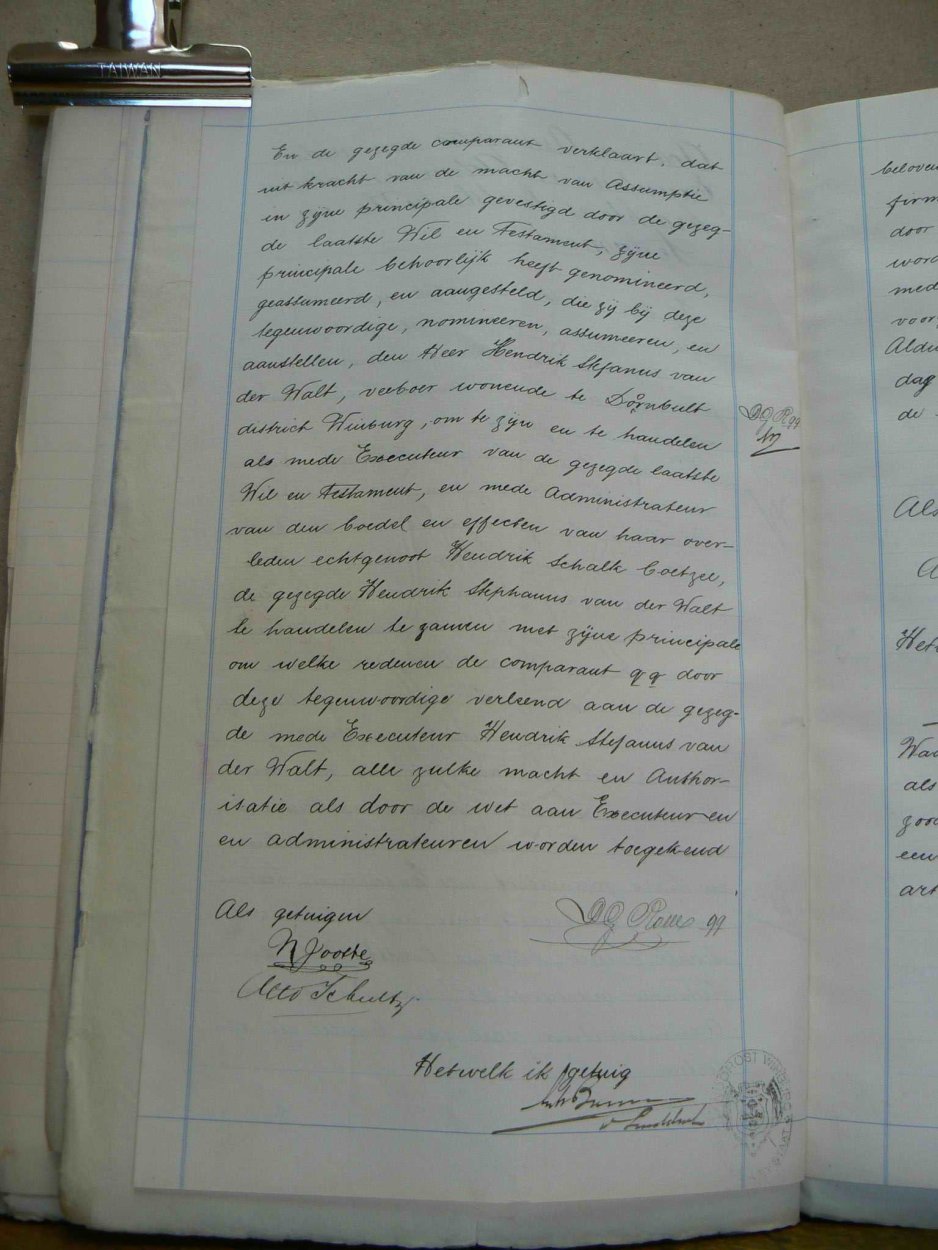 TAIWAN
En de gezegde comparant verklaart, dat
uit kracht van de macht van Assumptie
in zijne principale gevestigd door de gezeg-
de laatste Wil en Testament, zijne
principale behoorlijk heeft genomineerd,
geassumeerd, en aangesteld, die zij bij deze
tegenwoordige, nomineeren, assumeeren, en
aanstellen, den Heer Hendrik Stefanus van
der Walt, veeboer wonende te Dornbult
district Winburg, om te zijn en te handelen
als mede Executeur van de gezegde laatste
Wil en Testament, en mede Administrateur
van den boedel en effecten van haar over-
leden echtgenoot Hendrik Schalk Coetzee,
de gezegde Hendrik Stephanus van der Walt
te handelen te zamen met zijne principale
om welke redenen de comparant qq door
deze tegenwoordige verleend aan de gezeg-
de mede Executeur Hendrik Stefanus van
der Walt, alle zulke macht en Author-
isatie als door de wet aan Executeuren
en administrateuren worden toegekend
Als getuigen
N Jooste
Otto Schultz
Hetwelk ik getuig
firm
door
word
med
voor
dag
de
Als
als
een
art